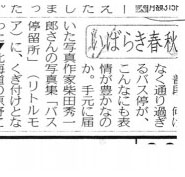 いばらき春秋
なく通り過ぎ
るバス停が、
こんなにも表
情が豊かなの
か。手元に届
いた写真作家柴田秀一
郎さんの写真集「バス
停留所」（リトルモ
ア）に、くぎ付けとな
北海道の原野